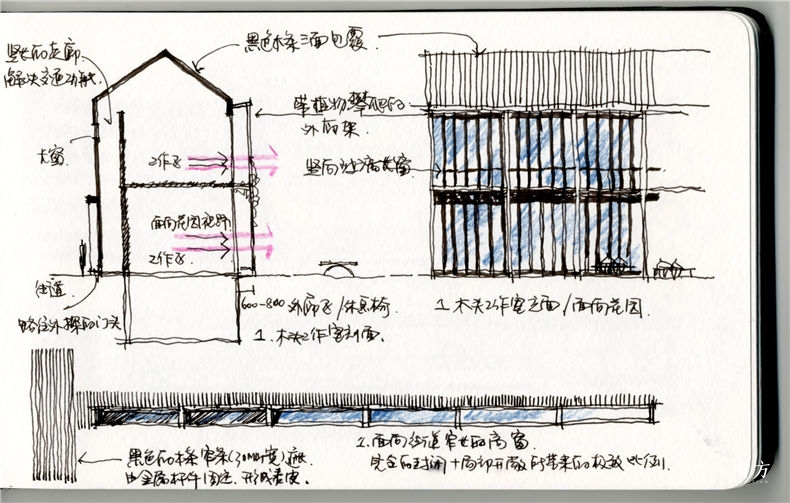 竖长的走廊
解决交通功能
黑色木条三面包覆
带植物攀爬的
外构架
大窗
工作区
竖向
面向花园视野
工作区
街道
600-800 外廊区/休息椅
1. 木头工作室剖面。
1. 木头工作室立面/面向花园
略往外探的门头
黑色的木条窄条(30MM宽)
由金属杆件固定,形成
2. 面向街道窄长的高窗
完全的封闭+局部开敞所带来的极致比例